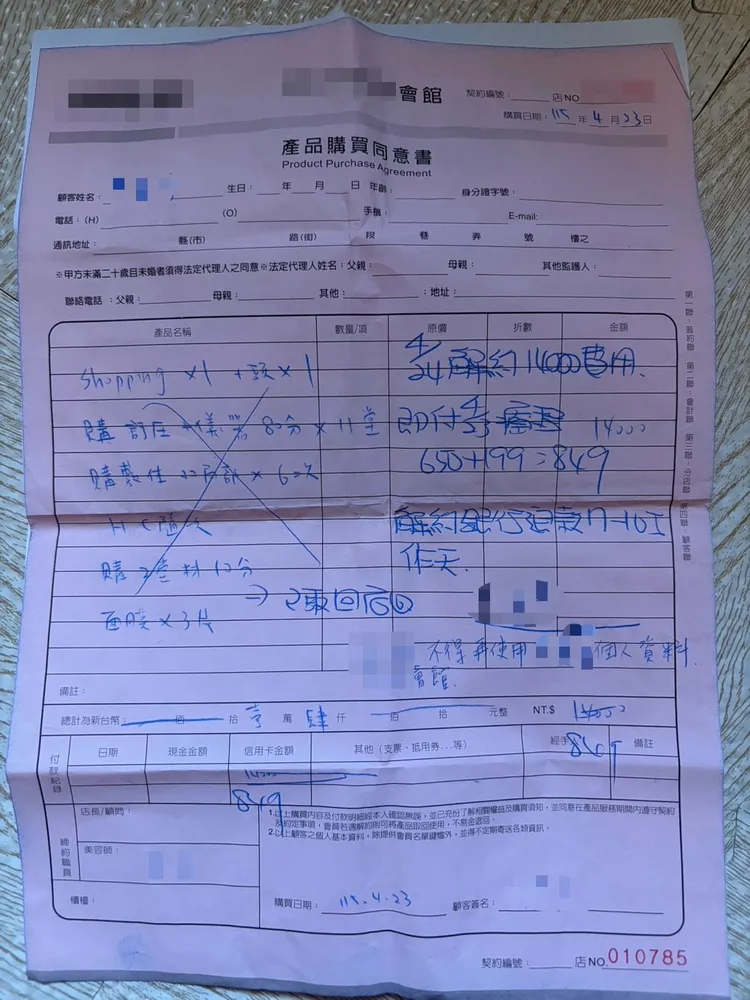 會館
契約編號：　店NO
購買日期：115年4月23日
產品購買同意書
Product Purchase Agreement
顧客姓名：　生日：　年　月　日 年齡：　身分證字號：
電話：(H)　(O)　手機：　E-mail:
通訊地址：　縣(市)　路(街)　段　巷　弄　號　樓之
※甲方未滿二十歲且未婚者須得法定代理人之同意※法定代理人姓名：父親：　母親：　其他監護人：
聯絡電話：父親：　母親：　其他：　：地址：
產品名稱　數量/項　原價　折數　金額
shopping ×1 + 頭×1
4/24解約14000費用.
購　+儀器 80分 × 11堂
即付4/23　14000
購　× 60次
650+199=849
HC隨
解約銀行　7-10工
作天.
購　12分
面膜×3片
→已取回
不得再使用　個人資料.
會館.
備註：
總計為新台幣：　佰　拾 壹 萬 肆 仟　佰　拾　元整　NT.$ 14000
849
付款紀錄　日期　現金金額　信用卡金額　其他(支票、抵用券...等)　經手　備註
14000
849
締約職員
店長/顧問：
美容師：
櫃檯：
1.以上購買內容及付款明細經本人確認無誤，並已充份了解相關權益及購買須知，並同意在產品服務期間內遵守契約
及約定事項，會員若遇解約則可將產品取回使用，不易金退回。
2.以上顧客之個人基本資料，除提供會員名單建檔外，並得不定期寄送各類資訊。
購買日期：115.4.23　顧客簽名：
契約編號：　店NO.010785
第一聯：簽約聯　第二聯：會計聯　第三聯：分店聯　第四聯：顧客聯